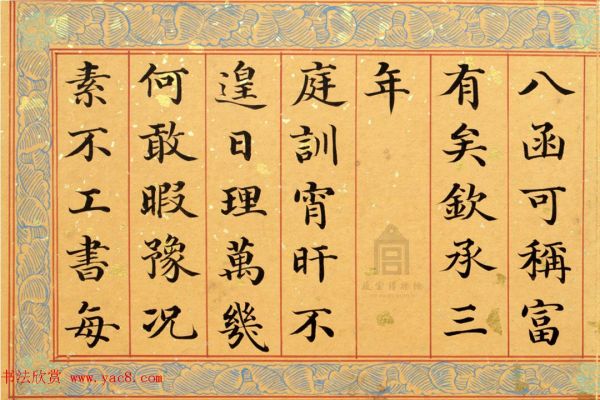 八函可稱富
有矣欽承三
年
庭訓宵旰不
遑日理萬幾
何敢暇豫况
素不工書每
故宫博物院
书法欣赏 www.yac8.com